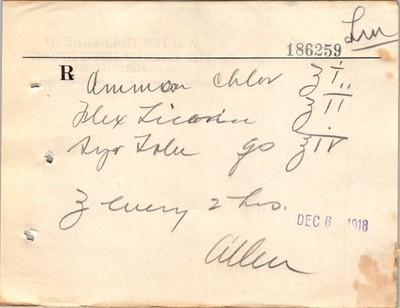 186259
℞ Ammon Chlor ʒ i
Flex Licorice ℥ ii
Syr Tolu qs ℥ iv
ʒ every 2 hrs.
DEC 6 1918
Allen